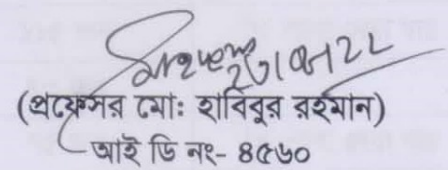 (প্রফেসর মো: হাবিবুর রহমান)
আই ডি নং- ৪৫৬০